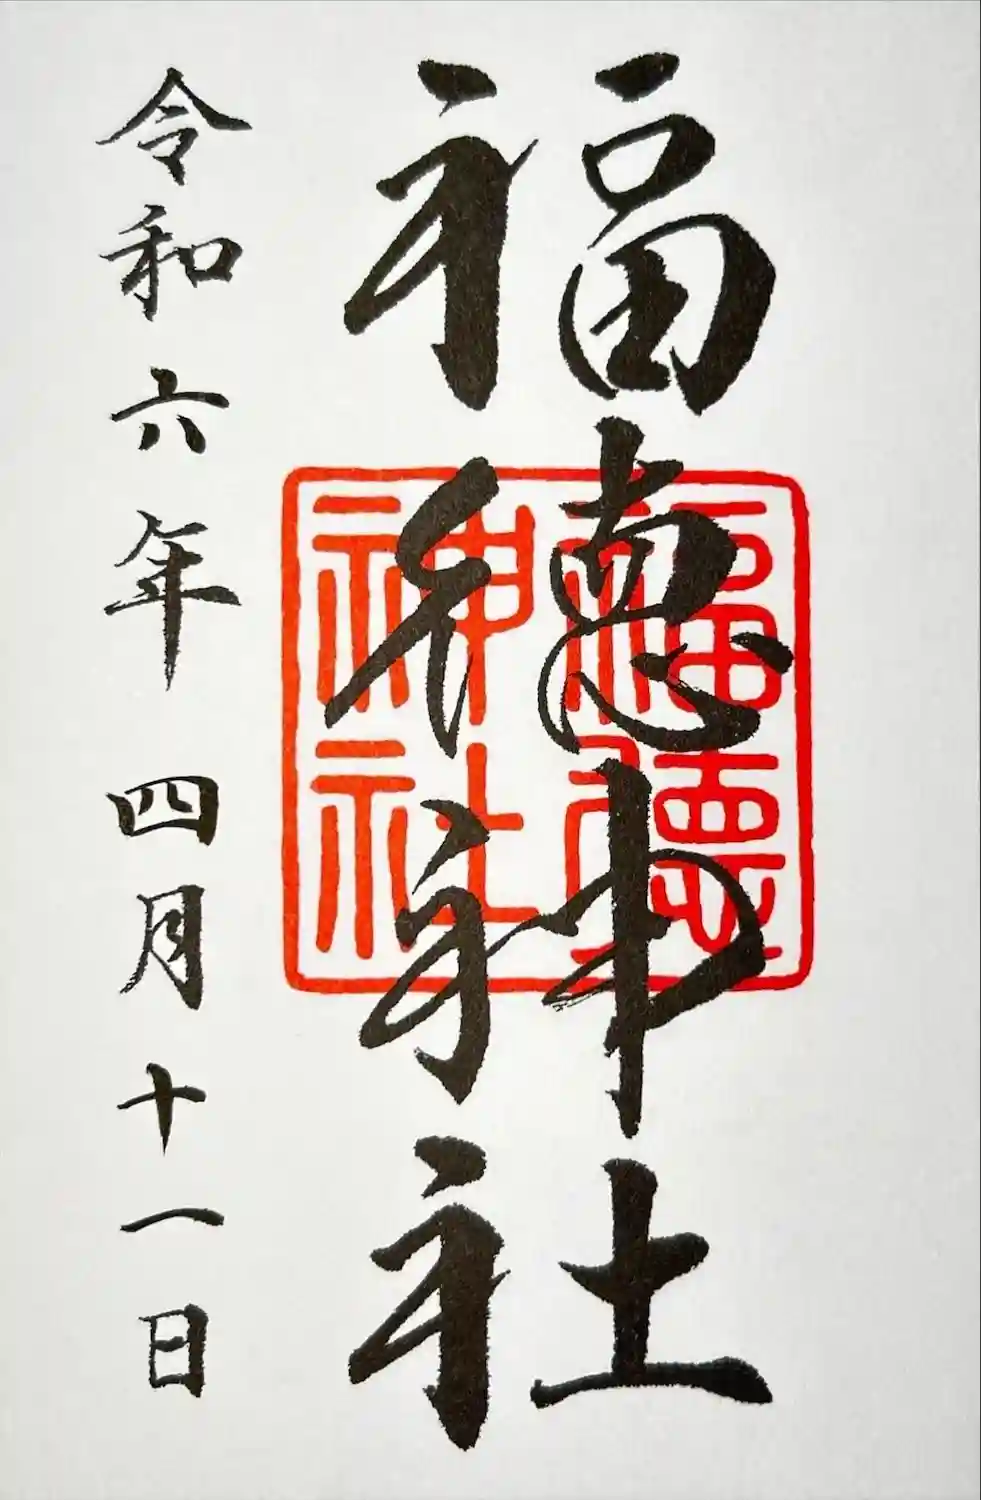 福徳神社
福徳神社
令和六年四月十一日